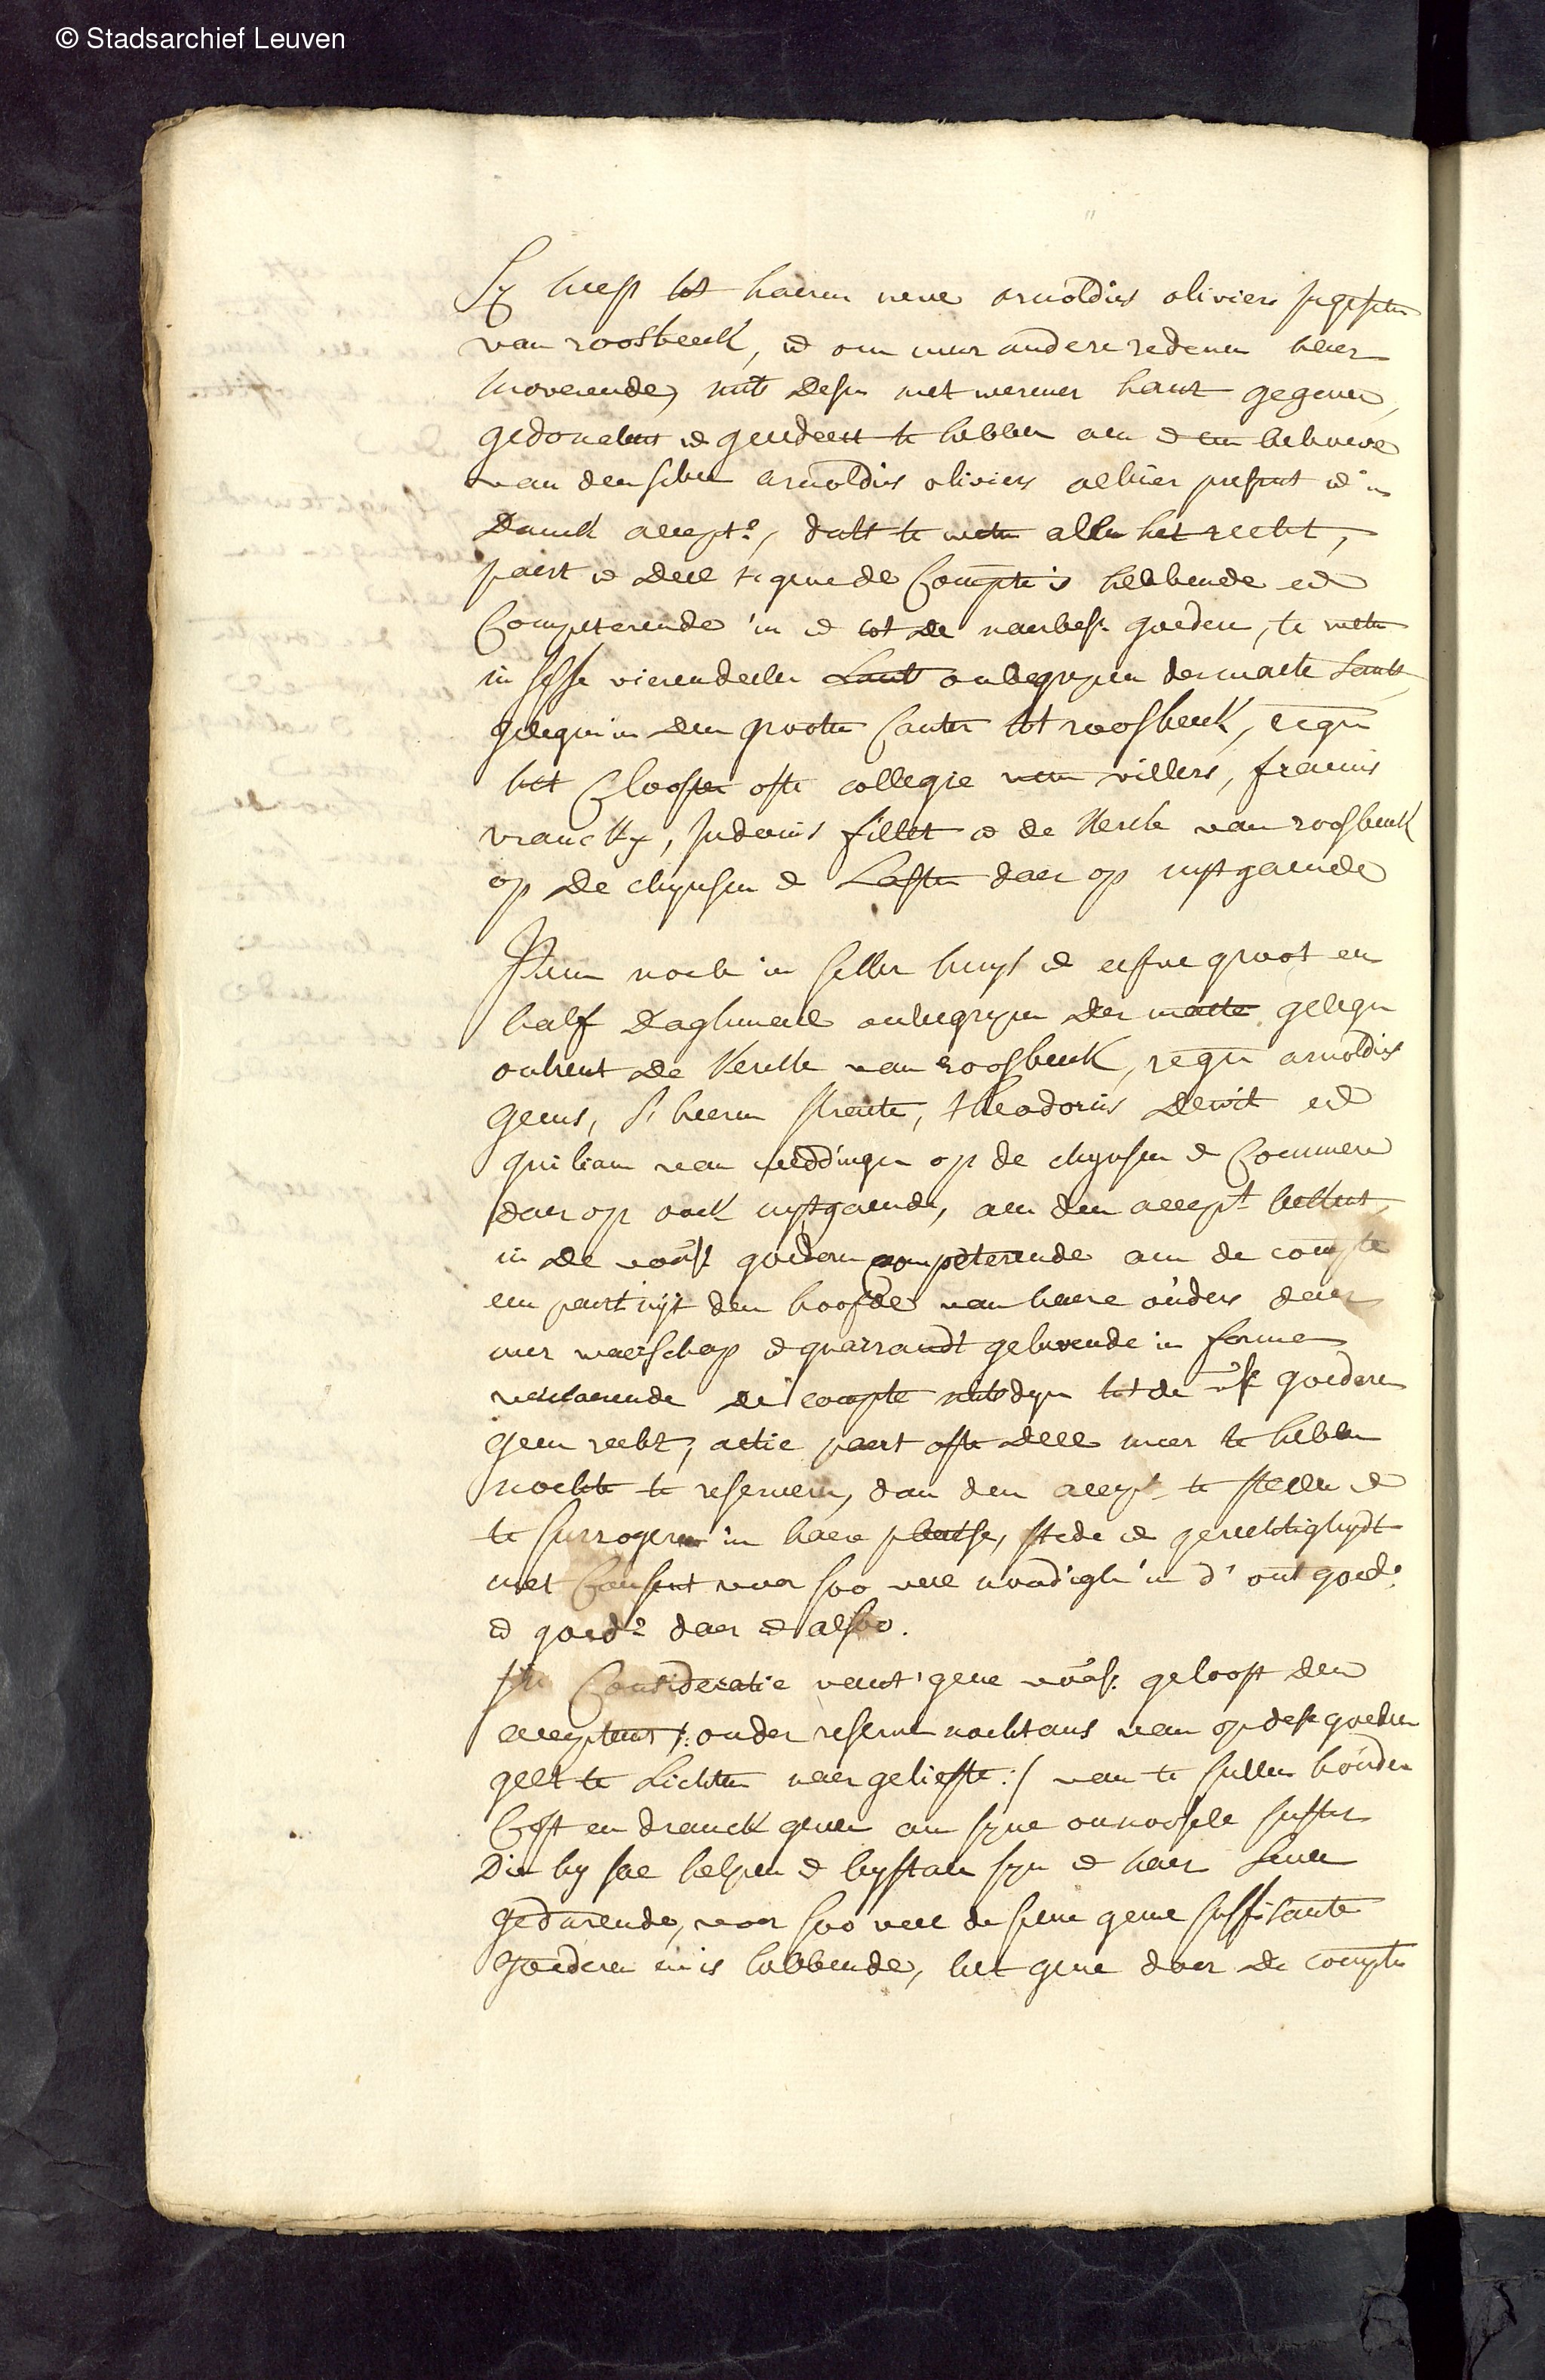 © Stadsarchief Leuven
Sy heeft tot haeren neve arnoldus oliviers ingesete
van roosbeeck, ende om meer andere redenen haer
moverende, mits desen met wermer hant gegeven,
gedoneert ende gecedeert te hebben aen ende ten behoeve
van den selven arnoldus oliviers alhier present ende in
Danck accept:, datt te weten alle het recht,
paert ende deel tgene de Compte is hebbende ende
Competerende in ende tot de naerbes: goeden, te weten
in sesse vierendeelen Lant onbegrepen der maete Lants
gelegen in den grooten Cauter tot roosbeeck, regen
het Clooster ofte collegie van villers, francis
vranckx, Judocus fillet ende de Kercke van roosbeeck
op de chynsen ende Lasten daer op uytgaende
Item noch in seker huys ende erfve groot een
half Daghmael onbegrepen der maete gelegen
ontrent de Kercke van roosbeeck, regen arnoldus
geens, S: heeren straete, theodorus dewit ende
guiliam van weddingen op de chynsen ende Commere
daer op oock uytgaende, aen den accept: bekent,
in de voors: goederen competerende aen de compte
een paert uyt den hoofde van haere ouders daer
voer waerschap ende guarrandt gelovende in forma
verclaerende de compte mits desen tot de vs: goederen
geen recht, actie paert ofte deel meer te hebben
nochte te reserveren, dan den accept: te stellen ende
te surrogeren in haere plaetse, stede ende gerechtigheydt
met Consent voor soo veel noodigh in d' ont goed:
ende goed: daer ende alsoo.
In Consideratie van t' gene voors: gelooft den
acceptant /: onder reserve nochtans van op dese goederen
gelt te Lichten naer geliefte :/ van te sullen houden
Cost en dranck geven aen syne onnoosele suster
Die hy sal helpen ende bystaen syn ende haer Leven
gedurende, voor soo veel de selve geene suffisante
goederen en is hebbende, het gene door de compte